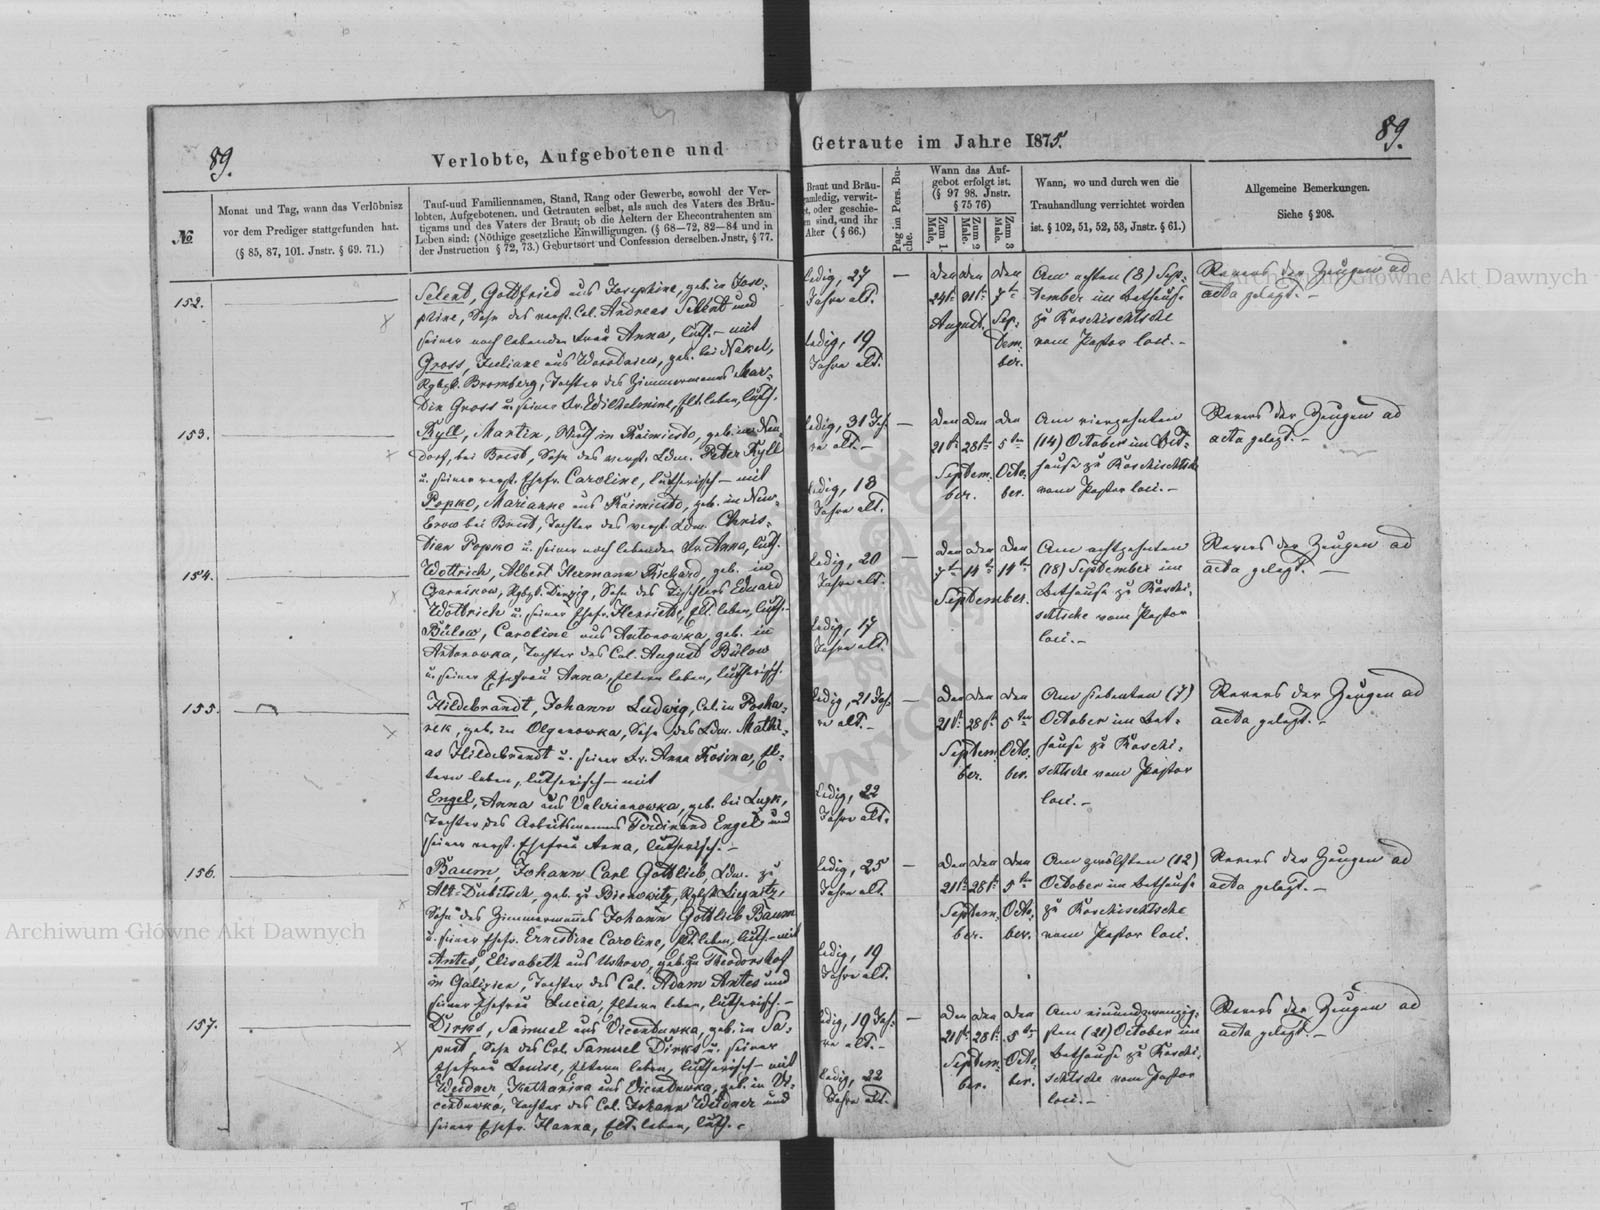 89.
Verlobte, Aufgebotene und
Getraute im Jahre 1875.
89.
№
Monat und Tag, wann das Verlöbnisz
vor dem Prediger stattgefunden hat.
(§ 85, 87, 101. Jnstr. § 69. 71.)
Tauf-und Familiennamen, Stand, Rang oder Gewerbe, sowohl der Ver-
lobten, Aufgebotenen, und Getrauten selbst, als auch des Vaters des Bräu-
tigams und des Vaters der Braut; ob die Aeltern der Ehecontrahenten am
Leben sind: (Nöthige gesetzliche Einwilligungen. (§ 68—72, 82—84 und in
der Jnstruction § 72, 73.) Geburtsort und Confession derselben. Jnstr, § 77.
Braut und Bräu-
ledig, verwit-
oder geschie-
sind, und ihr
Alter (§ 66.)
Pag im Pers. Bu-
che.
Wann das Auf-
gebot erfolgt ist.
(§ 97 98. Jnstr.
§ 75 76)
Zum 1 Male.
Zum 2 Male.
Zum 3 Male.
Wann, wo und durch wen die
Trauhandlung verrichtet worden
ist. § 102, 51, 52, 53, Jnstr. § 61.)
Allgemeine Bemerkungen.
Siehe § 208.
152.
Selent, Gottfried aus Josephine, geb. in Jose-
phine, Sohn des verst. Col. Andreas Selent und
seiner noch lebenden Frau Anna, luth. — mit
Gross, Juliane aus geb. bei Nakel,
Rgbzt. Bromberg, Tochter des Zimmermanns Mar-
tin Gross u. seiner Fr. Wilhelmine, Elt. leben, luth.
ledig, 27
Jahre alt.
ledig, 19
Jahre alt.
—
den den den
24t. 31t. 7t
August. Sep-
tem-
ber.
Am achten (8) Sep-
tember im Bethause
zu Roschischtsche
vom Pastor loci. -
Revers der Zeugen ad
acta gelegt. —
153.
Kyll, Martin, Wirth in geb. in Neu-
dorf, bei Brest, Sohn des verst. Ldm. Peter Kyll
u. seiner verst. Ehefr. Caroline, lutherisch — mit
Popko, Marianne aus geb. in Neu-
Brow bei Brest, Tochter des verst. Ldm. Chris-
tian Popko u. seiner noch lebenden Fr. Anna, luth.
ledig, 31 Jah-
re alt. —
ledig, 18
Jahre alt.
—
den den den
21t. 28t. 5ten
Septem- Octo-
ber. ber.
Am vierzehnten
(14) October im Bet-
hause zu Roschischtsche
vom Pastor loci. -
Revers der Zeugen ad
acta gelegt. —
154.
Wottrich, Albert Hermann Richard, geb. in
Czarnikow, Rgbzt. Danzig, Sohn des Tischlers Eduard
Wottrich u. seiner Ehefr. Henriette, Elt. leben, luth. -
Bülow, Caroline aus Antonowka, geb. in
Antonowka, Tochter des Col. August Bülow
u. seiner Ehefrau Anna, Eltern leben, lutherisch.
ledig, 20
Jahre alt.
ledig, 17
Jahre alt.
—
den den den
7t. 14t. 14t.
September.
Am achtzehnten
(18) September im
Bethause zu Roschi-
schtsche vom Pastor
loci. -
Revers der Zeugen ad
acta gelegt. —
155.
Hildebrandt, Johann Ludwig, Col. in
geb. in Olganowka, Sohn des Ldm. Mathi-
as Hildebrandt u. seiner Fr. Anna Rosina, El-
tern leben, lutherisch — mit
Engel, Anna aus Valerianowka, geb. bei Luzk,
Tochter des Arbeitsmannes Ferdinand Engel und
seiner verst. Ehefrau Anna, lutherisch. —
ledig, 21 Jah-
re alt. —
ledig, 22
Jahre alt.
—
den den den
21t. 28t. 5ten
Septem- Octo-
ber. ber.
Am siebenten (7)
October im Bet-
hause zu Roschi-
schtsche vom Pastor
loci. -
Revers der Zeugen ad
acta gelegt. —
156.
Baum, Johann Carl Gottlieb, Ldm. zu
Alt-Dubitsch, geb. zu Bienowitz, Rgbzt. Liegnitz,
Sohn des Zimmermannes Johann Gottlieb Baum
u. seiner Ehefr. Ernestine Caroline, Elt. leben, luth. — mit
Antes, Elisabeth aus geb. zu Theodorshof
in Galizien, Tochter des Col. Adam Antes und
seiner Ehefrau Lucia, Eltern leben, lutherisch. —
ledig, 25
Jahre alt.
ledig, 19
Jahre alt.
—
den den den
21t. 28t. 5ten
Septem- Octo-
ber. ber.
Am zwölften (12)
October im Bethause
zu Roschischtsche
vom Pastor loci.
Revers der Zeugen ad
acta gelegt. —
157.
Dirks, Samuel aus Vicentuwka, geb. in
Sohn des Col. Samuel Dirks u. seiner
Ehefrau Louise, Eltern leben, lutherisch — mit
Weidner, Katharina aus Vicentuwka, geb. in Vi-
centuwka, Tochter des Col. Johann Weidner und
seiner Ehefr. Hanna, Elt. leben, luth. -
ledig, 19 Jah-
re alt. -
ledig, 22
Jahre alt.
—
den den den
21t. 28t. 5ten
Septem- Octo-
ber. ber.
Am einundzwanzig-
sten (21) October im
Bethause zu Roschi-
schtsche vom Pastor
loci. -
Revers der Zeugen ad
acta gelegt. —
Archiwum Główne Akt Dawnych
Archiwum Główne Akt Dawnych